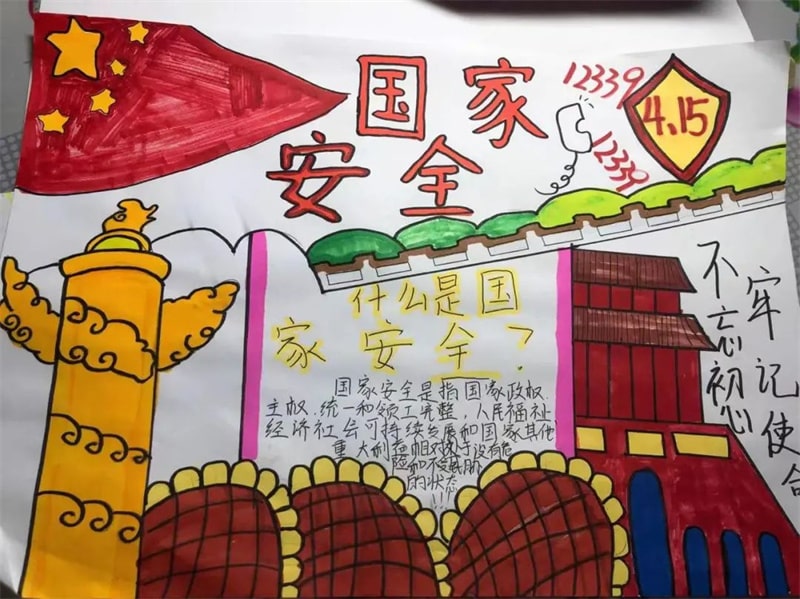 国家
安全
12339
4.15
12339
什么是国
家安全?
国家安全是指国家政权.
主权.统一和领土完整,人民福祉
经济社会可持续发展和国家其他
重大利益相对处于没有危
险和不受威胁
的状态
!!!
不忘初心
牢记使命